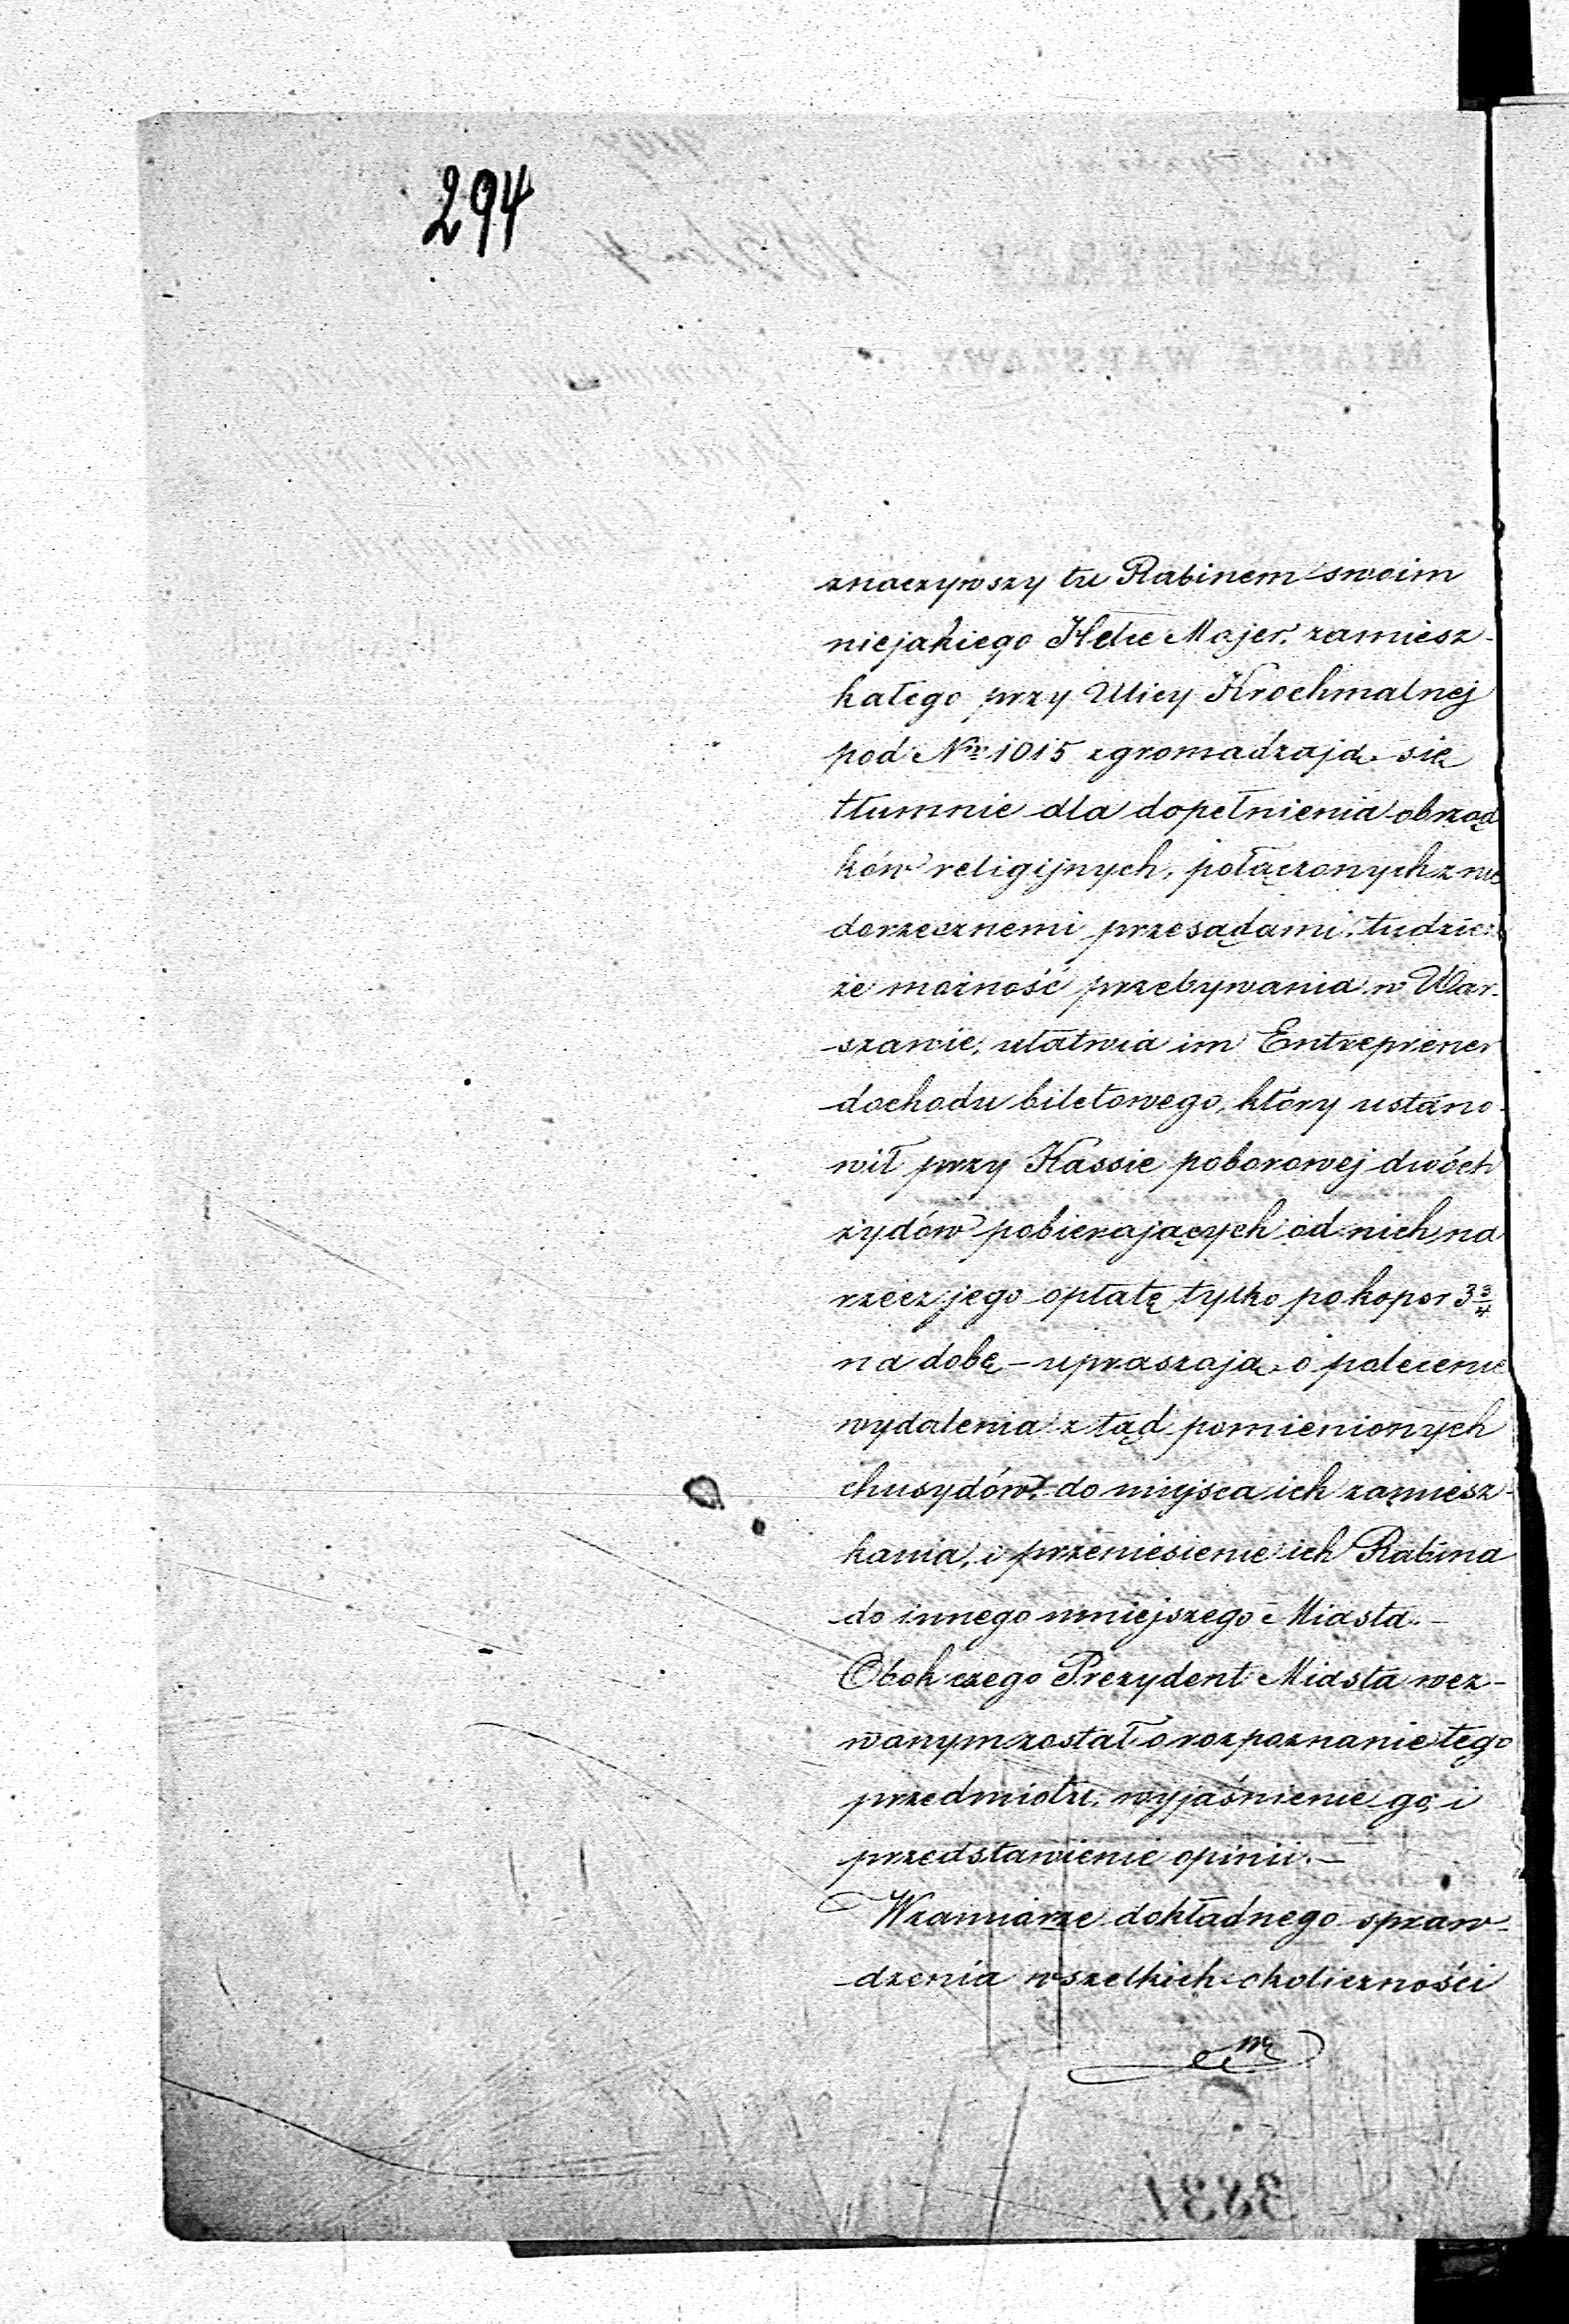 294
znaczywszy tu Rabinem swoim
niejakiego Majer, zamiesz-
kałego przy Ulicy Krochmalnej
pod Nrm 1015 zgromadzają się
tłumnie dla dopełnienia obrząd
ków religijnych, połączonych z nie
dorzecznemi przesądami, tudzież
że możność przebywania w War-
szawie, ułatwia im Entreprener
dochodu biletowego, który ustano-
wił przy Kassie poborowej dwóch
żydów pobierających od nich, na
rzecz jego opłatę tylko po kopar 3 3/4
na dobę – upraszają o polecenie
wydalenia z tąd pomienionych
chusydów, do miejsca ich zamiesz-
kania, i przeniesienie ich Rabina
do innego mniejszego Miasta. –
Obok czego Prezydent Miasta wez-
wanym został o rozpoznanie tego
przedmiotu, wyjaśnienie go, i
przedstawienie opinii. –
W zamiarze dokładnego spraw-
dzenia wszelkich okoliczności
MIASTA WARSZAWY